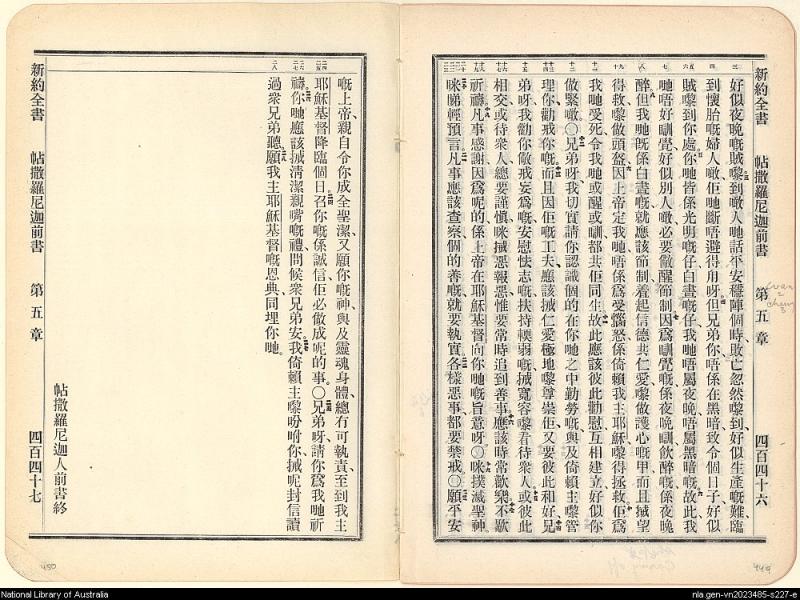 新約全書　帖撒羅尼迦前書　第五章　四百四十六
好似夜晚嘅賊嚟到噉人哋話平安穩陣個時敗亡忽然嚟到好似生產嘅難臨
到懷胎嘅婦人噉佢哋斷唔避得用呀但兄弟你唔係在黑暗致令個日子好似
賊嚟到你處你哋皆係光明嘅仔白晝嘅仔我哋唔屬夜晚唔屬黑暗嘅故此我
哋唔好瞓覺好似別人噉必要儆醒節制因爲瞓覺嘅係夜晚瞓飲醉嘅係夜晚
醉但我哋旣係白晝嘅就應該節制着起信德共仁愛嚟做護心嘅甲而且搣望
得救嚟做頭盔因上帝定我哋唔係爲受惱怒係倚賴我主耶穌嚟得拯救佢爲
我哋受死令我哋或醒或瞓都共佢同生故此應該彼此勸慰互相建立好似你
做緊噉〇兄弟呀我切實請你認識個的在你哋之中勤勞嘅與及倚賴主嚟管
理你勸戒你嘅而且因佢嘅工夫應該搣仁愛極地嚟尊崇佢又要彼此和好兄
弟呀我勸你儆戒妄爲嘅安慰怯志嘅扶持輭弱嘅搣寬容嚟看待衆人或彼此
相交或待衆人總要謹愼咪搣惡報惡惟要常時追到善事應該時常歡樂不歇
祈禱凡事感謝因爲呢的係上帝在耶穌基督向你哋嘅旨意呀〇咪撲滅聖神
咪睇輕預言凡事應該查察個的善嘅就要執實各樣惡事都要禁戒〇願平安
嘅上帝親自令你成全聖潔又願你嘅神與及靈魂身體總冇可執責至到我主
耶穌基督降臨個日召你嘅係誠信佢必做成呢的事〇兄弟呀請你爲我哋祈
禱你哋應該搣清潔親嘴嘅禮問候衆兄弟安我倚賴主嚟吩咐你搣呢封信讀
過衆兄弟聽願我主耶穌基督嘅恩典同埋你哋
帖撒羅尼迦人前書終
新約全書　帖撒羅尼迦前書　第五章　四百四十七
450
449
National Library of Australia
nla.gen-vn2023485-s227-e